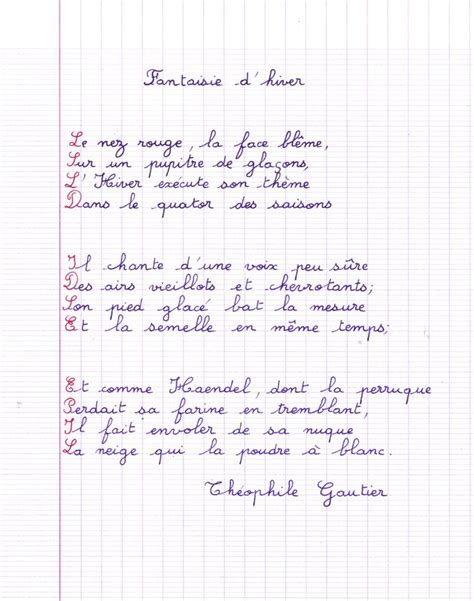 Fantaisie d'hiver
Le nez rouge, la face blême,
Sur un pupitre de glaçons,
L'Hiver exécute son thème
Dans le quator des saisons
Il chante d'une voix peu sûre
Des airs vieillots et chevrotants;
Son pied glacé bat la mesure
Et la semelle en même temps;
Et comme Haendel, dont la perruque
Perdait sa farine en tremblant,
Il fait envoler de sa nuque
La neige qui la poudre à blanc.
Théophile Gautier